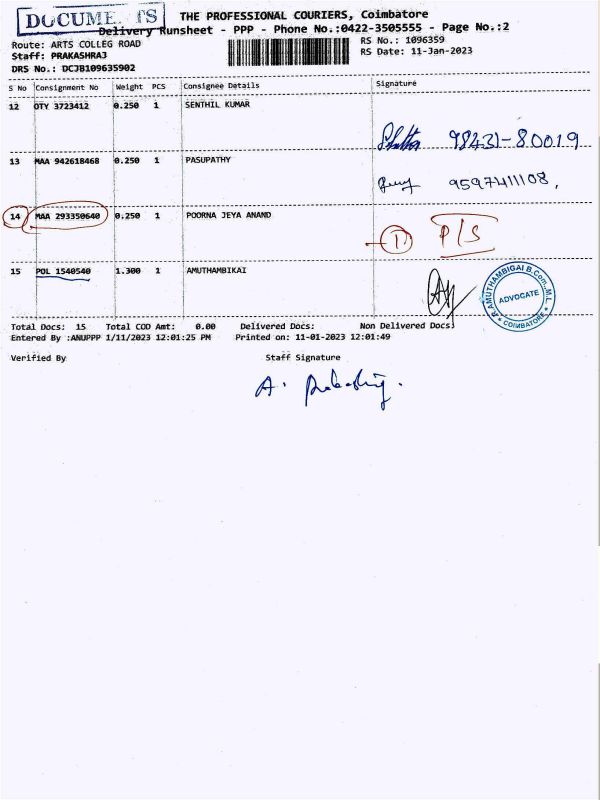 DOCUMENTS
THE PROFESSIONAL COURIERS, Coimbatore
Delivery Runsheet - PPP - Phone No.:0422-3505555 - Page No.:2
Route: ARTS COLLEG ROAD
RS No.: 1096359
Staff: PRAKASHRAJ
RS Date: 11-Jan-2023
DRS No.: DCJB109635902
S No Consignment No Weight PCS Consignee Details Signature
12 OTY 3723412 0.250 1 SENTHIL KUMAR
98431-80019
13 MAA 942618468 0.250 1 PASUPATHY
9597411108,
14 MAA 293350640 0.250 1 POORNA JEYA ANAND
1 P/S
15 POL 1540540 1.300 1 AMUTHAMBIKAI
R. AMUTHAMBIGAI B.Com.,M.L.
ADVOCATE
* COIMBATORE *
Total Docs: 15 Total COD Amt: 0.00 Delivered Docs: Non Delivered Docs:
Entered By :ANUPPP 1/11/2023 12:01:25 PM Printed on: 11-01-2023 12:01:49
Verified By Staff Signature